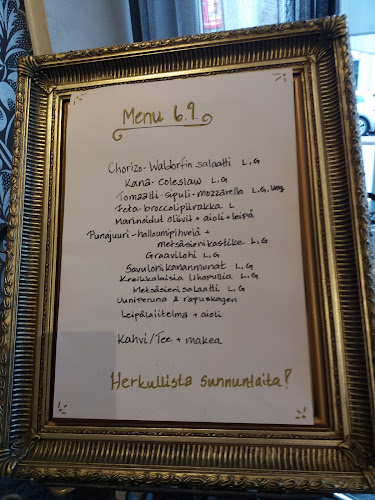 Menu 6.9
Chorizo-Waldorfin salaatti L,G
Kana-Coleslaw L,G
Tomaatti-sipuli-mozzarella L,G,Veg
Feta-broccolipiirakka L
Marinoidut Oliivit + aioli + leipä
Punajuuri-halloumipihvejä +
metsäsienikastike L,G
Graavilohi L,G
Savulohikananmunat L,G
Kreikkalaisia lihapullia L,G
Metsäsienisalaatti L,G
Uuniperuna & rapuskagen
Leipälajitelma + aioli
Kahvi/Tee + makea
Herkullista sunnuntaita!